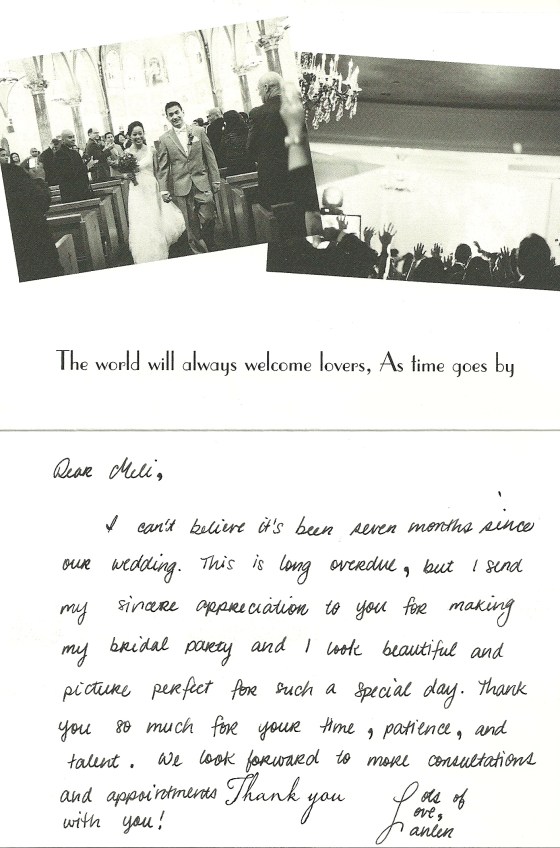 The world will always welcome lovers, As time goes by
Dear Meli,
I can't believe it's been seven months since
our wedding. This is long overdue, but I send
my sincere appreciation to you for making
my bridal party and I look beautiful and
picture perfect for such a special day. Thank
you so much for your time, patience, and
talent. We look forward to more consultations
and appointments Thank you
with you!
Lots of
Love,